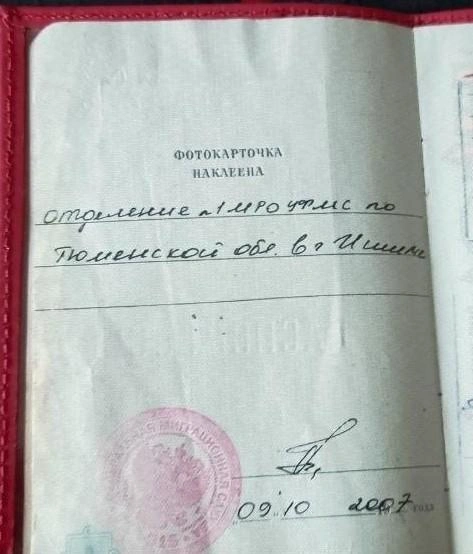 ФОТОКАРТОЧКА
НАКЛЕЕНА
отделение №1 МРО УФМС по
Тюменской обл. в г Ишиме
МИГРАЦИОННАЯ
„09„ 10 2007 года